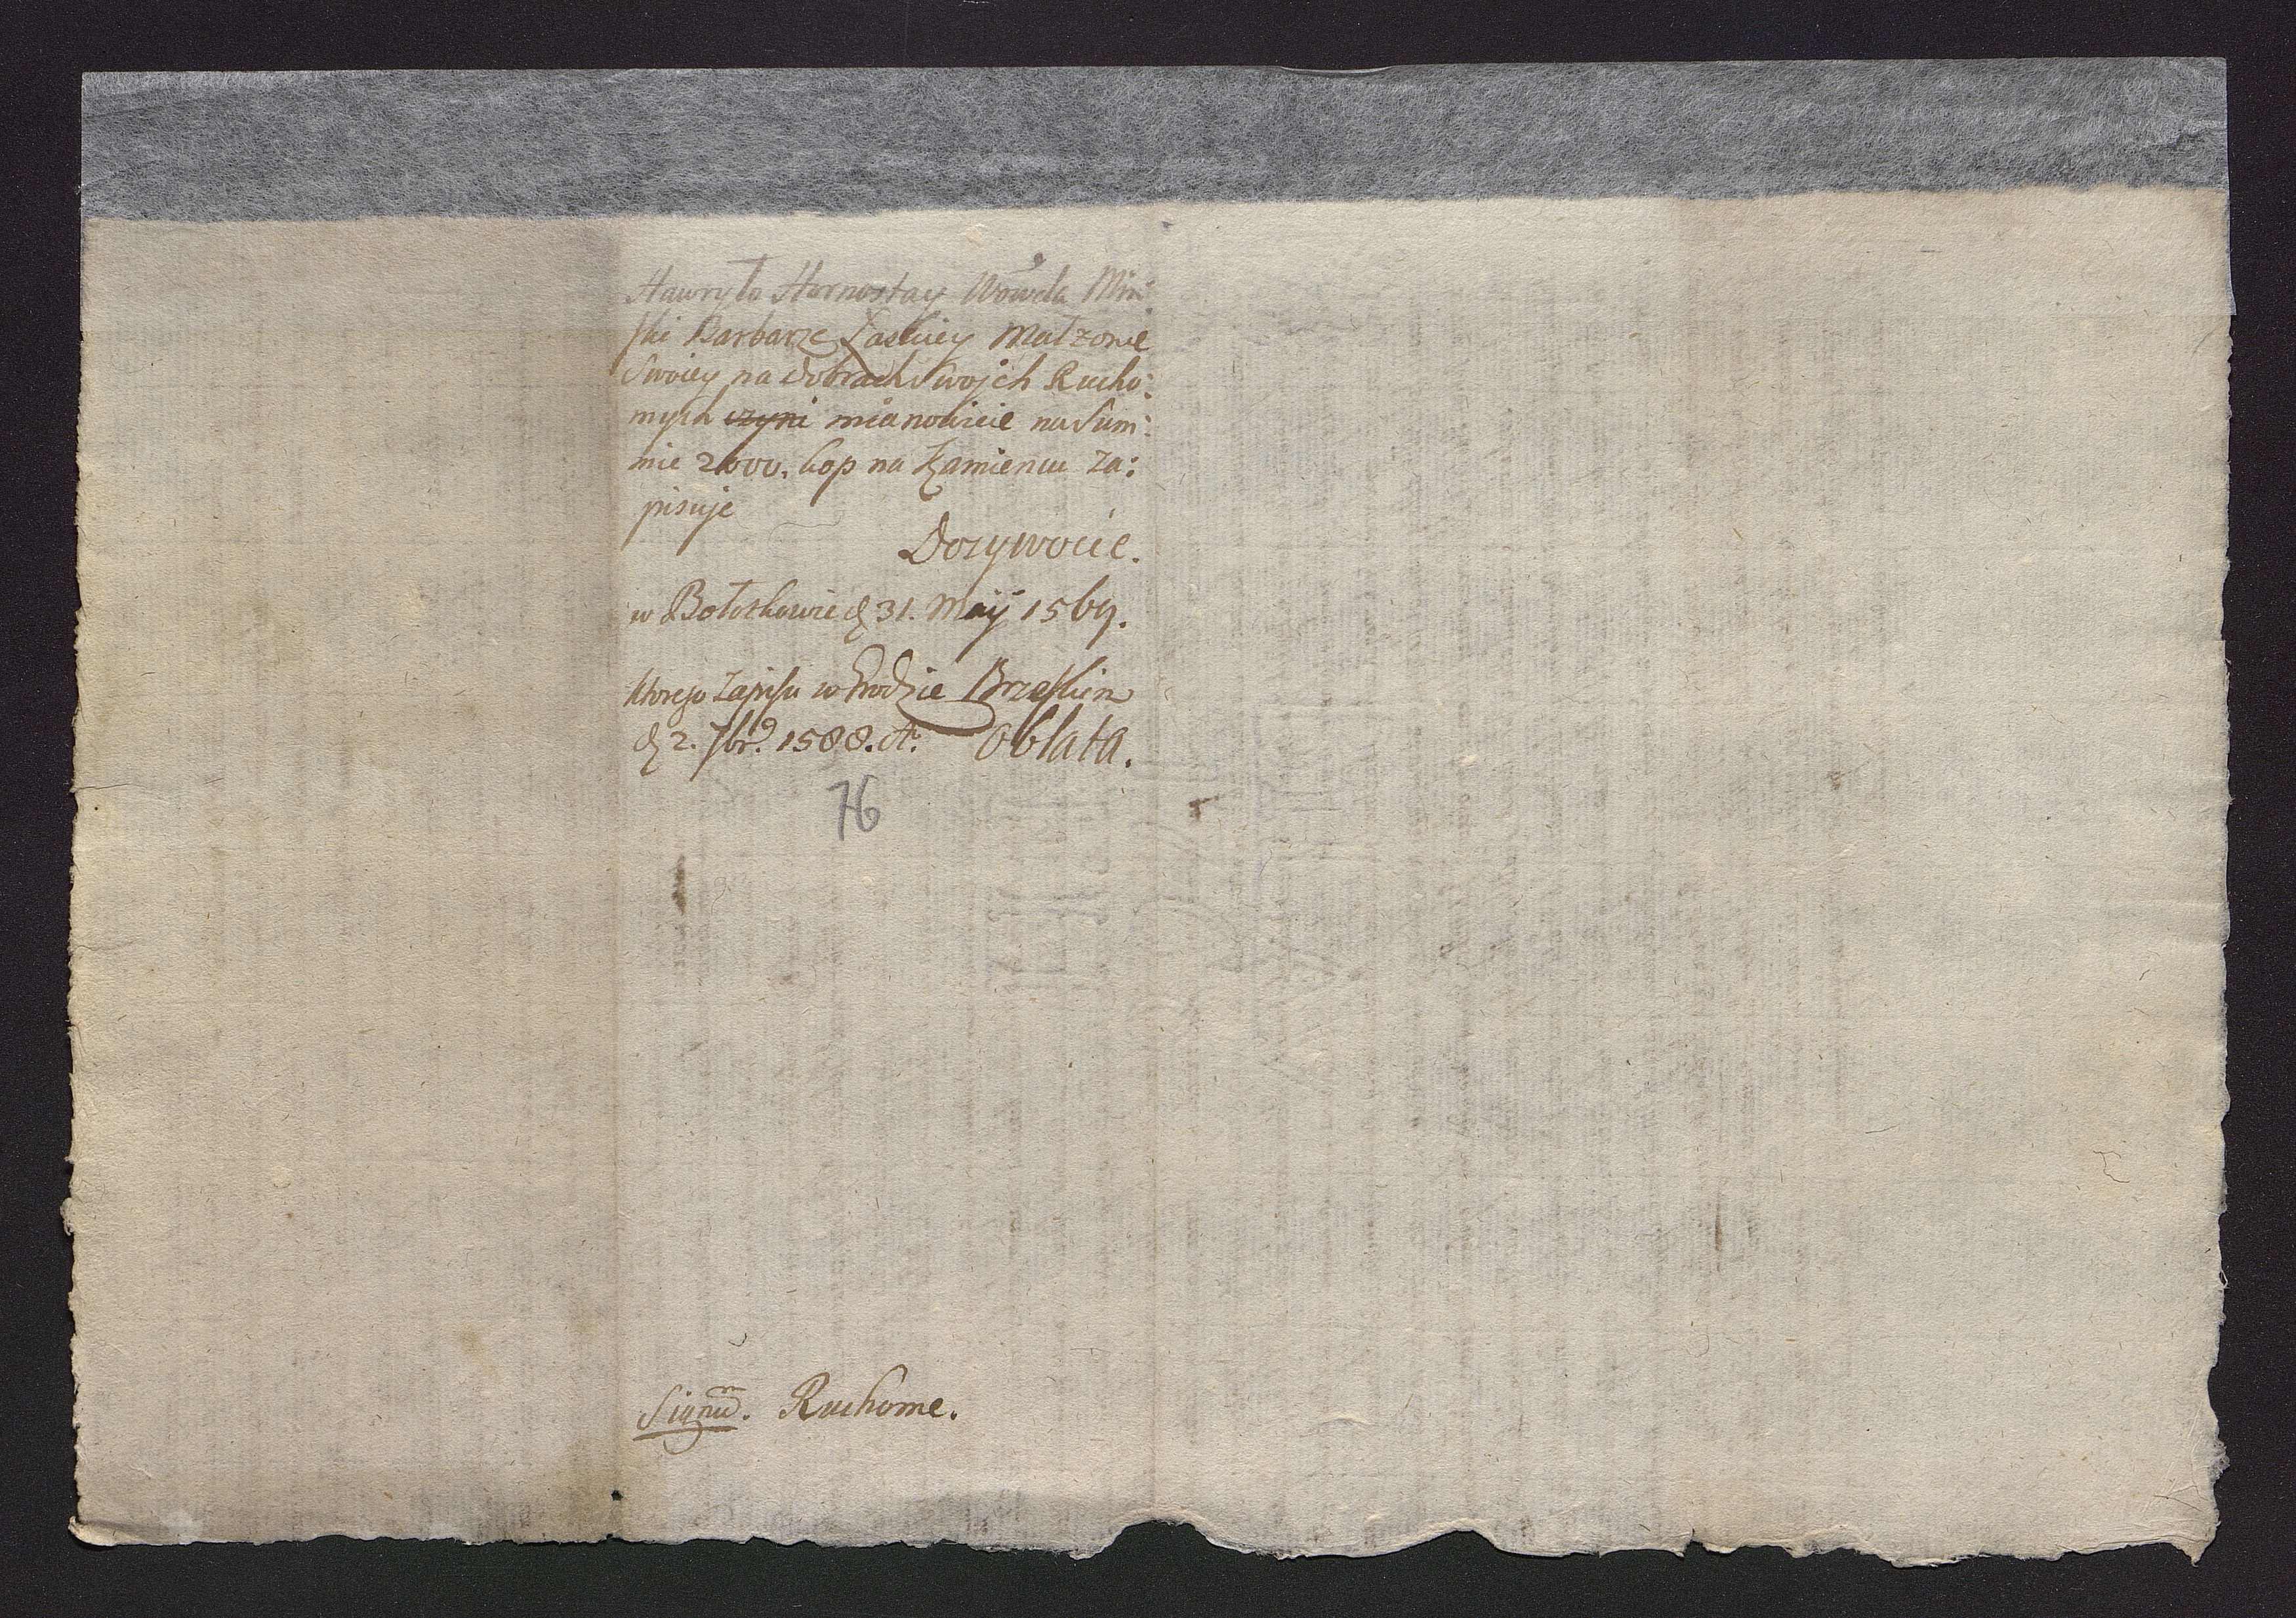 Hawryło Hornostay Wowda Miń:
ski Barbarze Łaskiey Małzonce
Swoiey na dobrach Swojch Rucho:
mych czyni mianowicie na Sum:
mie 2000. kop na Kamiencu za:
pisuje
Dozywocie.
w Bołotkowie d 31. Maij 1569.
ktorego Zapisu w Grodzie Brzeskim
d 2. 7br. 1588. A. Oblata.
76
Signm. Ruchome.